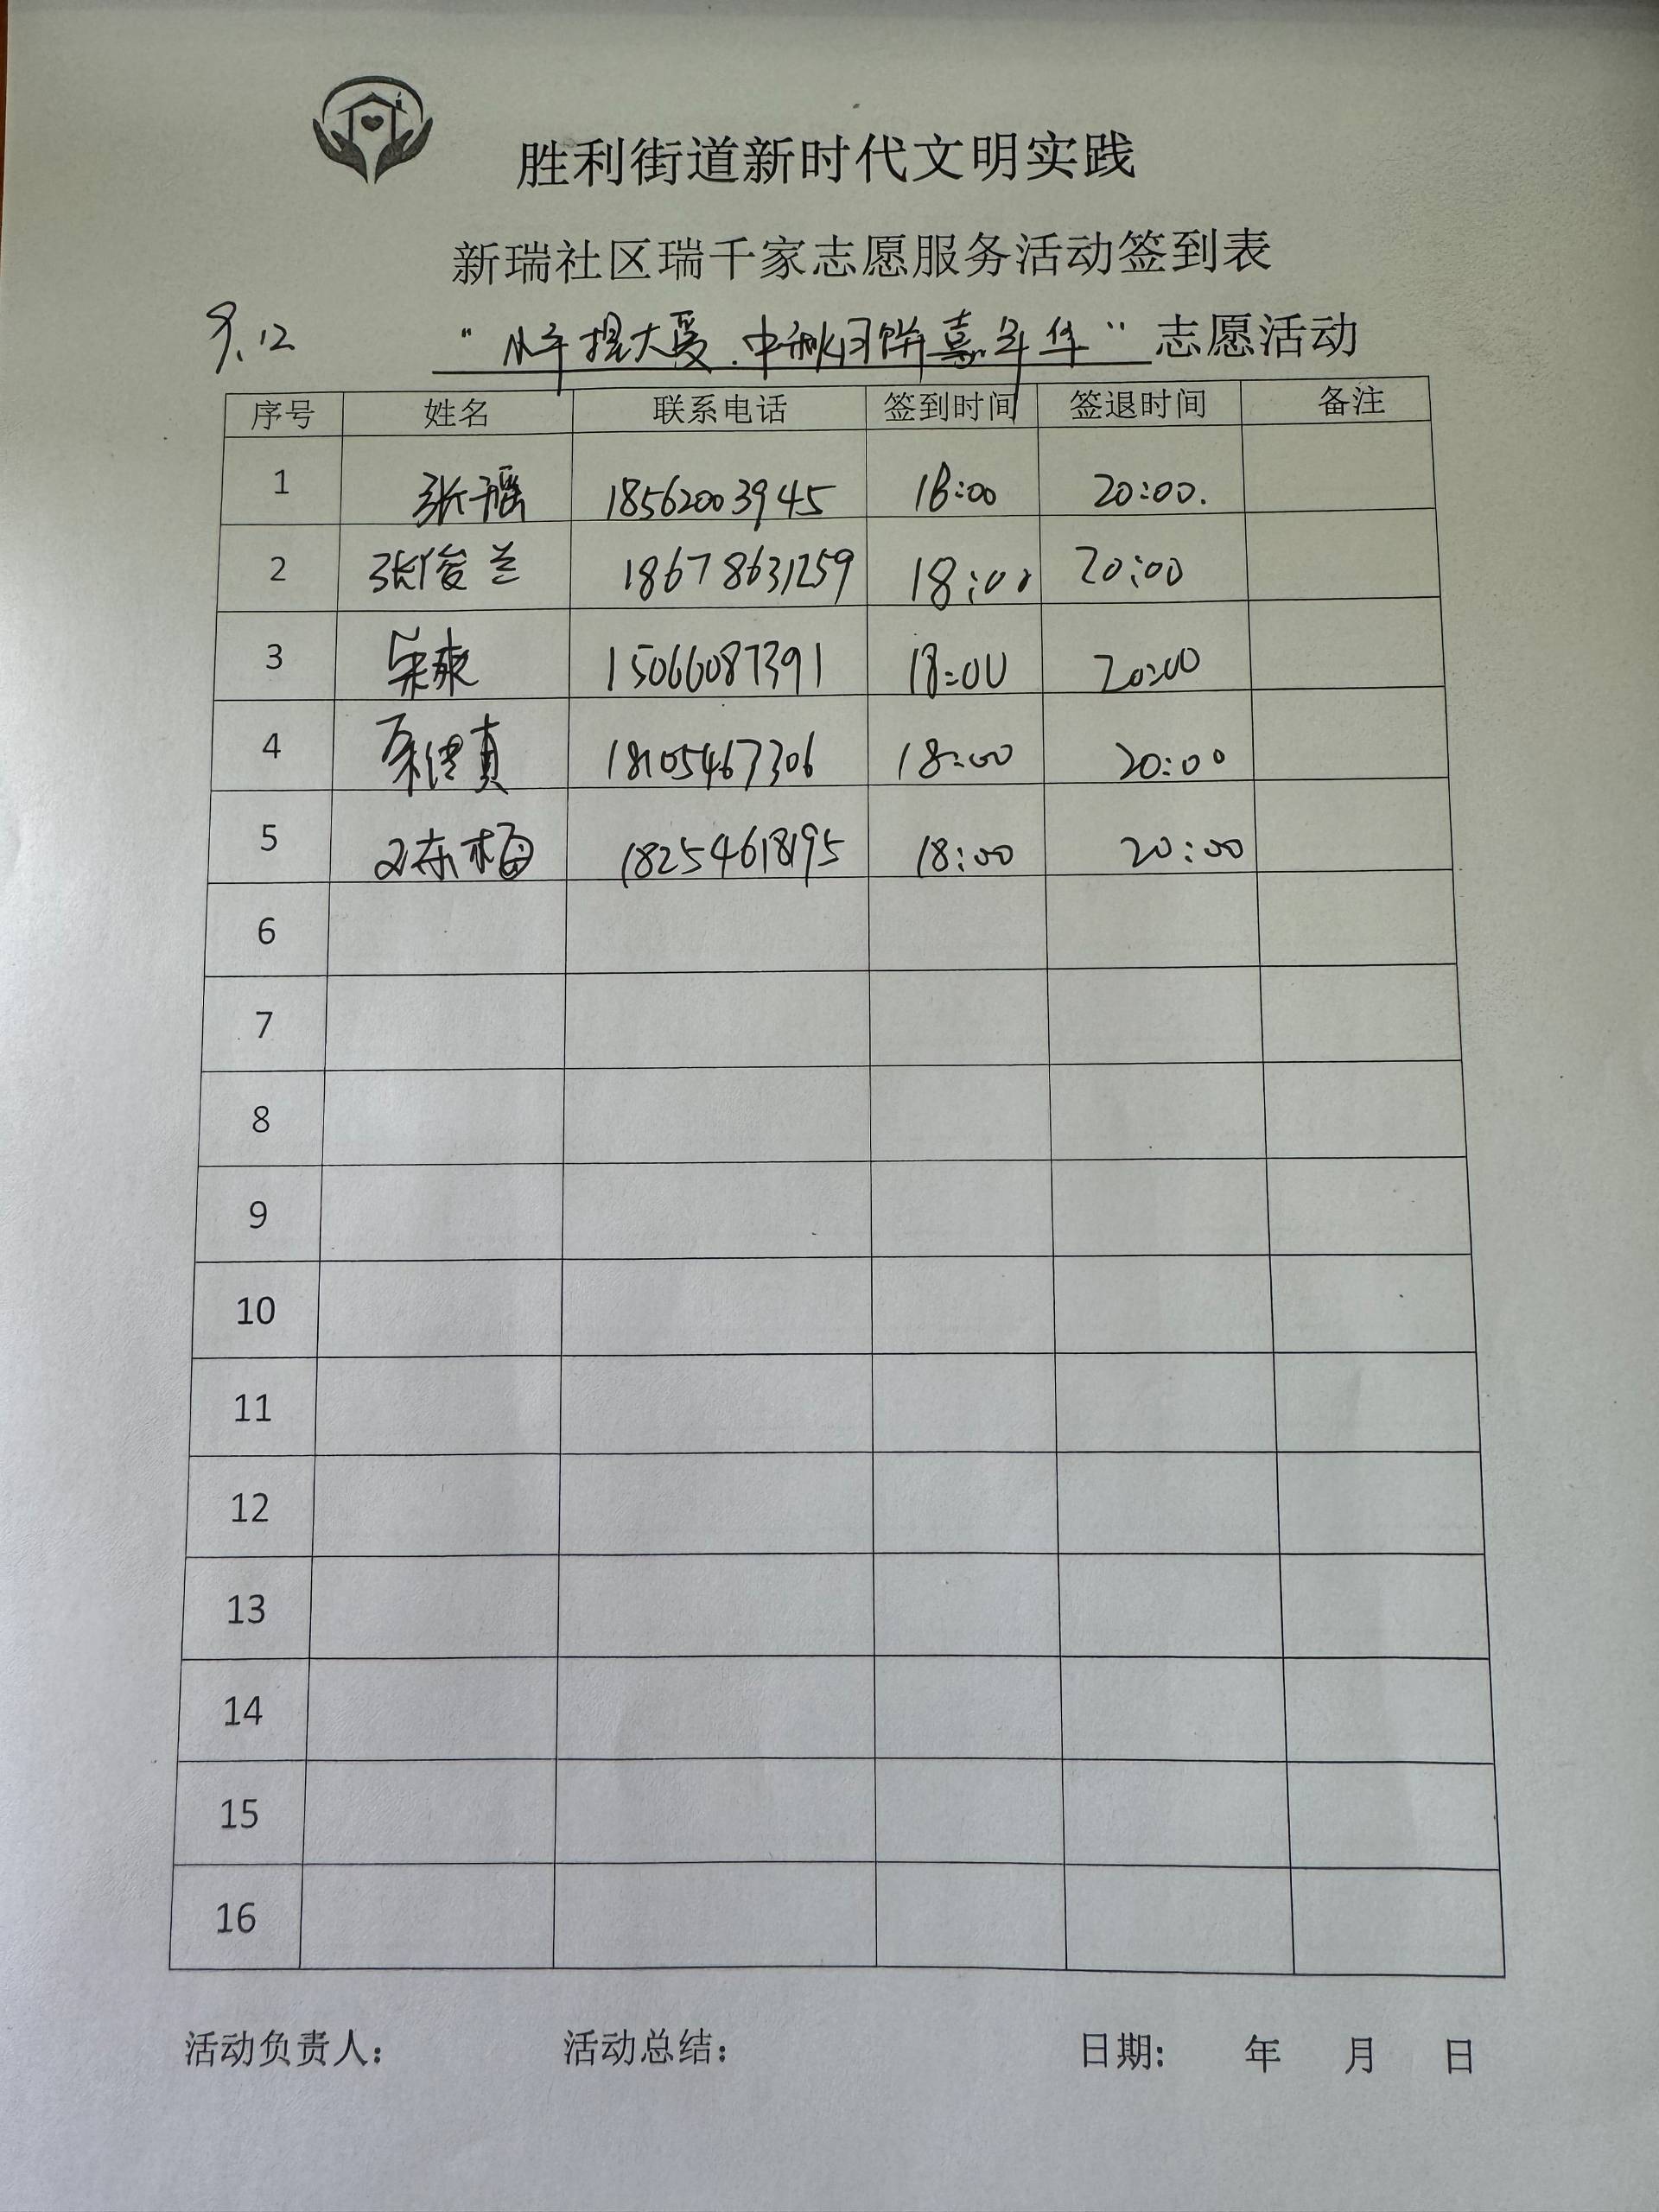 胜利街道新时代文明实践
新瑞社区瑞千家志愿服务活动签到表
9.12 "小手提大爱.中秋月饼嘉年华" 志愿活动
序号 姓名 联系电话 签到时间 签退时间 备注
1 张瑶 18562003945 18:00 20:00.
2 张俊兰 18678631259 18:00 20:00
3 吴爽 15066087391 18:00 20:00
4 18105467306 18:00 20:00
5 冬梅 18254618195 18:00 20:00
6
7
8
9
10
11
12
13
14
15
16
活动负责人: 活动总结: 日期: 年 月 日